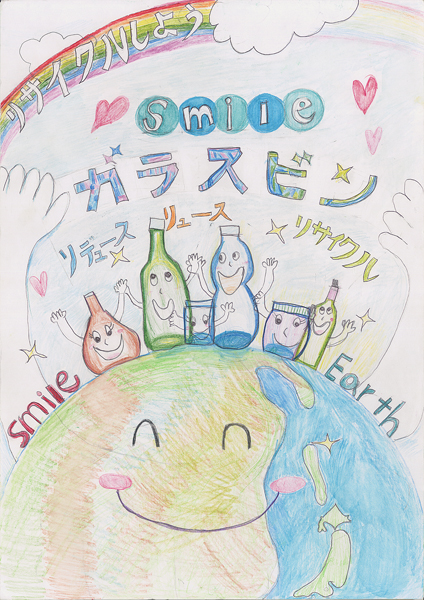 リサイクルしよう
Smile
ガラスビン
リデュース リユース リサイクル
Smile Earth